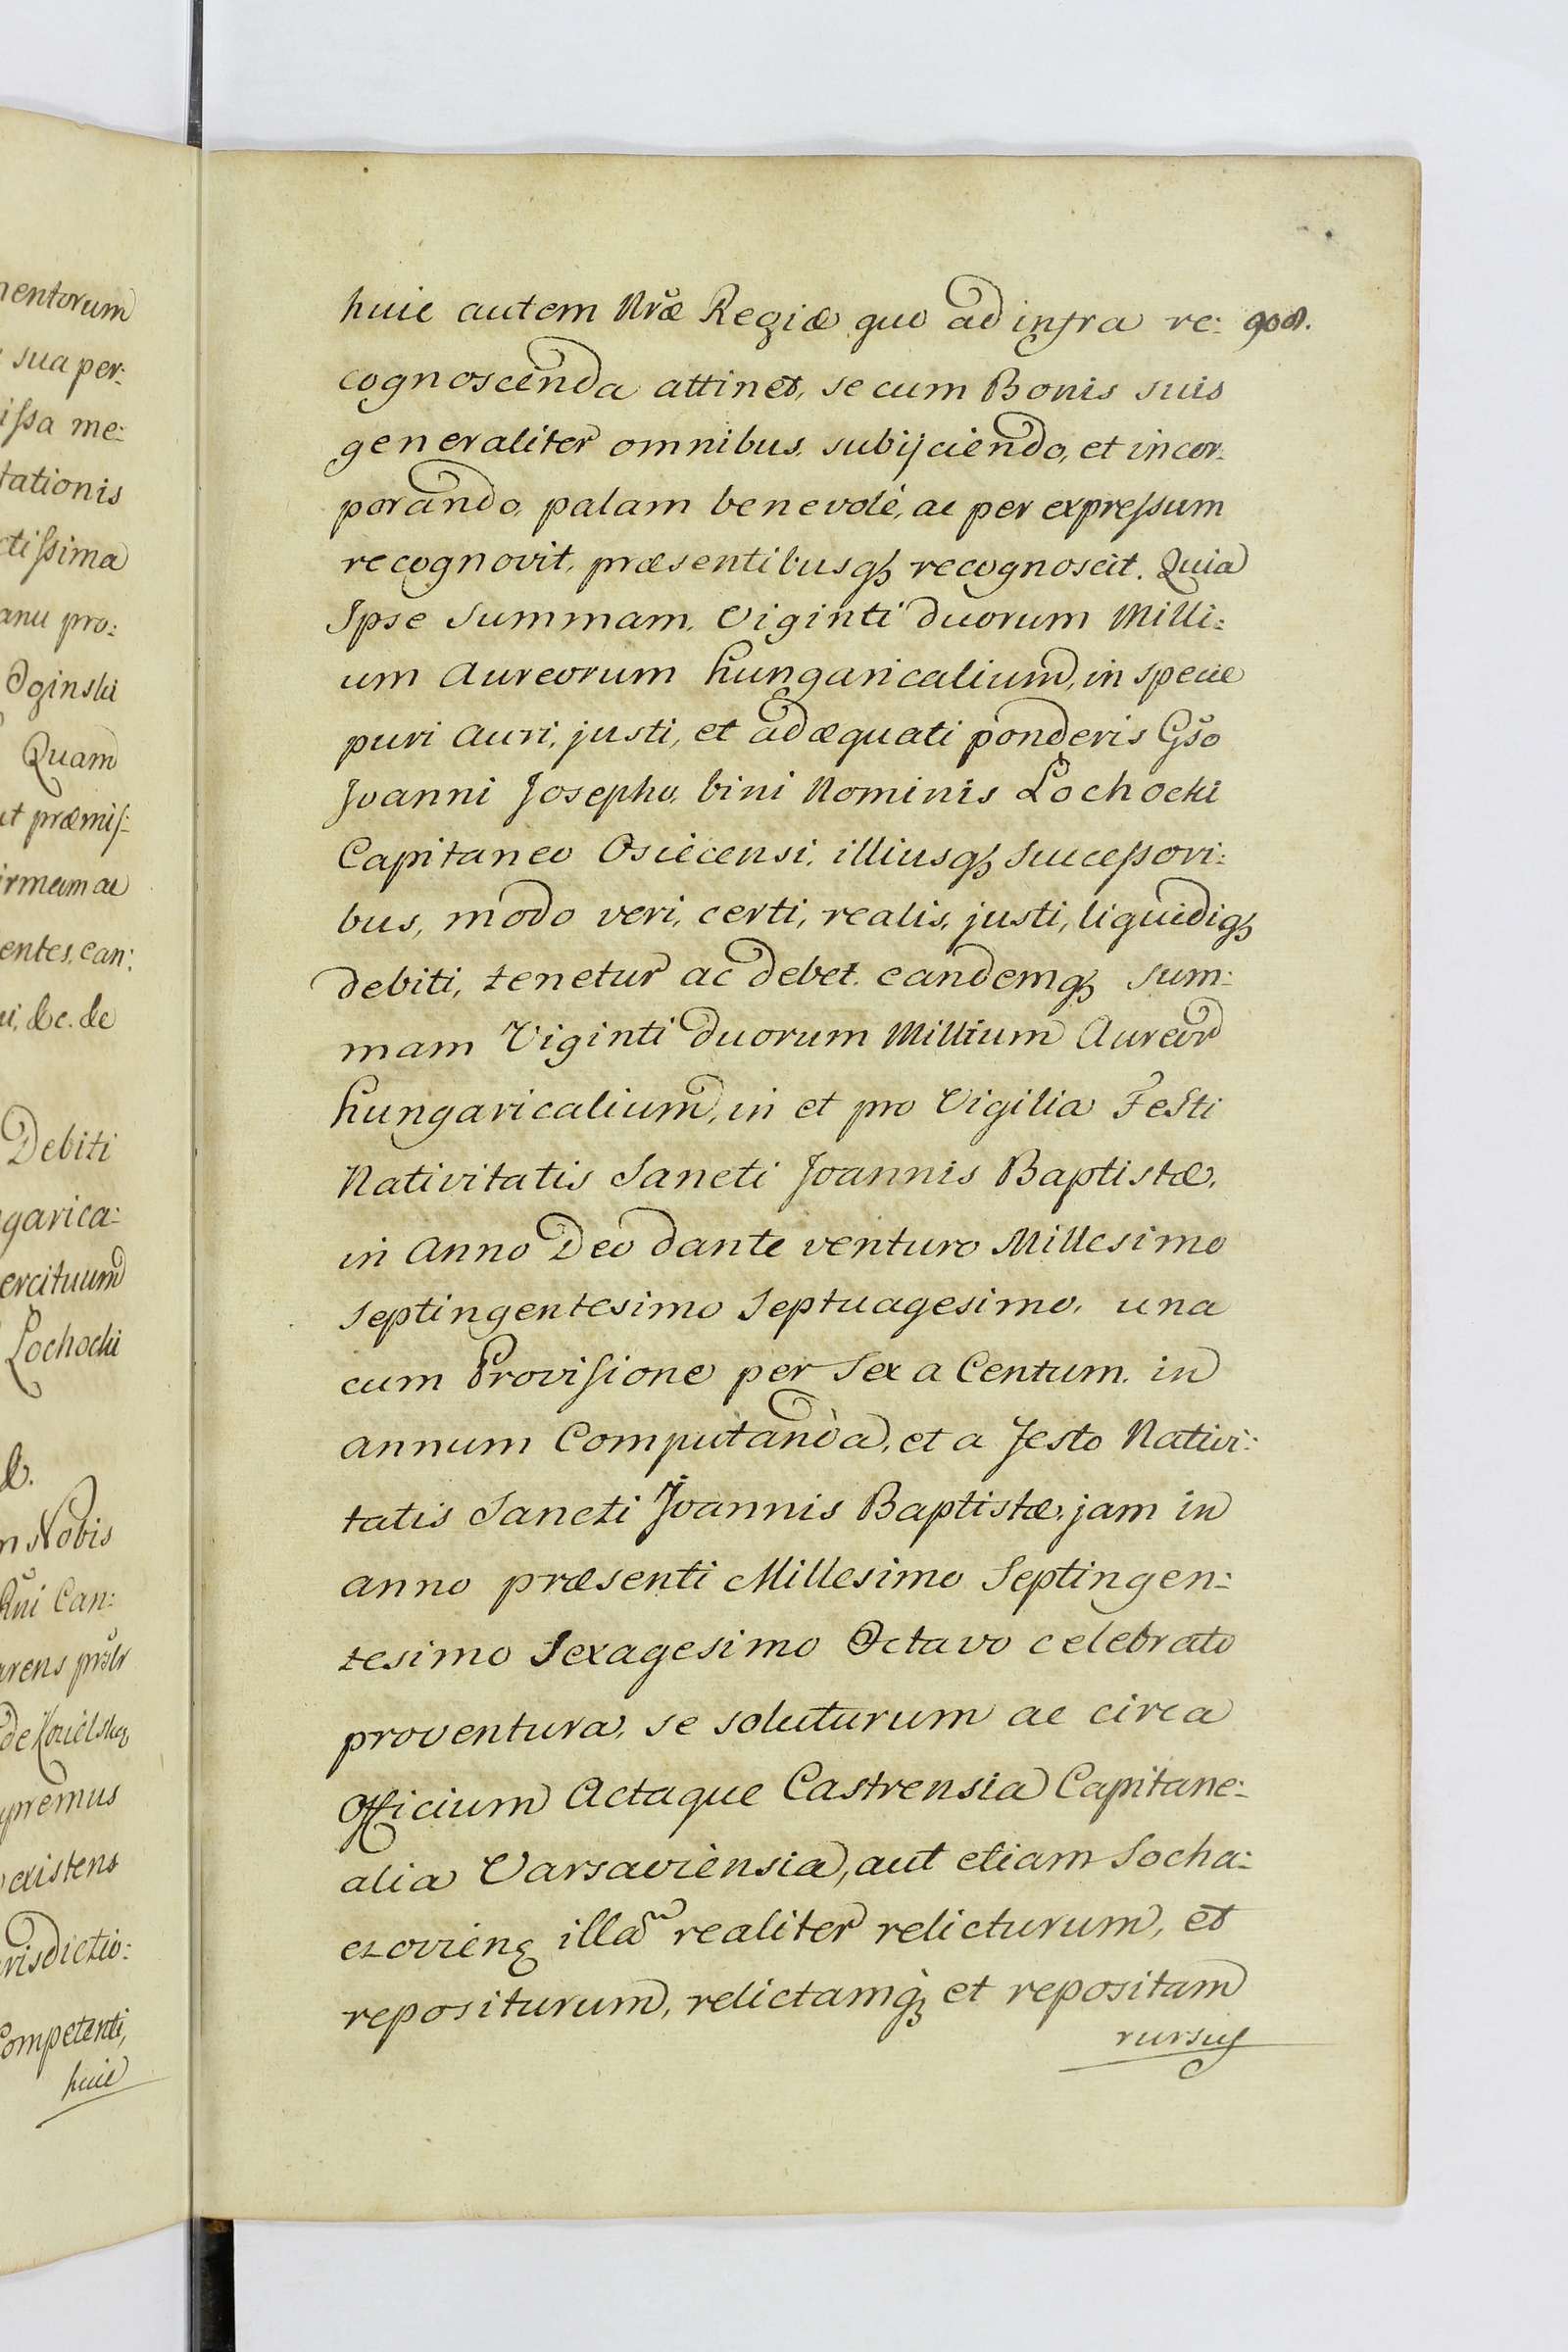 nentorum
sua per:
issa me:
tationis
ctissima
anu pro:
Oginski
Quam
ut præmis:
irmam ac
entes, ean:
ui, &c. &c
Debiti
ngarica:
ercituum
Lochocki
&.
n Nobis
Rni Can:
arens prslr
de Kozielsko
premus
existens
urisdictio:
Competenti,
huic
huic autem Nrae Regiæ quo ad infra re: 908.
cognoscenda attinet, se cum Bonis suis
generaliter omnibus, subijciendo, et incor:
porando, palam benevolè, ac per expressum
recognovit, præsentibusq; recognoscit. Quia
Ipse Summam, Viginti duorum Milli:
um Aureorum hungaricalium, in specie
puri Auri, justi, et adæquati ponderis Gso
Joanni Josepho, bini Nominis Lochocki
Capitaneo Osiecensi, illiusq; Successori:
bus, modo veri, certi, realis, justi, liquidiq;
debiti, tenetur ac debet, eandemq; sum:
mam Viginti duorum Millium Aureor
hungaricalium, in et pro Vigilia Festi
Nativitatis Sancti Joannis Baptistæ,
in Anno Deo dante venturo Millesimo
Septingentesimo Septuagesimo, una
cum Provisione per Sex a Centum, in
annum Computanda, et a Festo Nativi:
tatis Sancti Joannis Baptistæ, jam in
anno præsenti Millesimo Septingen:
tesimo Sexagesimo Octavo celebrato
proventura, se soluturum ac circa
Officium Actaque Castrensia Capitane:
alia Varsaviensia, aut etiam Socha:
czovien illam realiter relicturum, et
repositurum, relictamq; et repositam
rursus